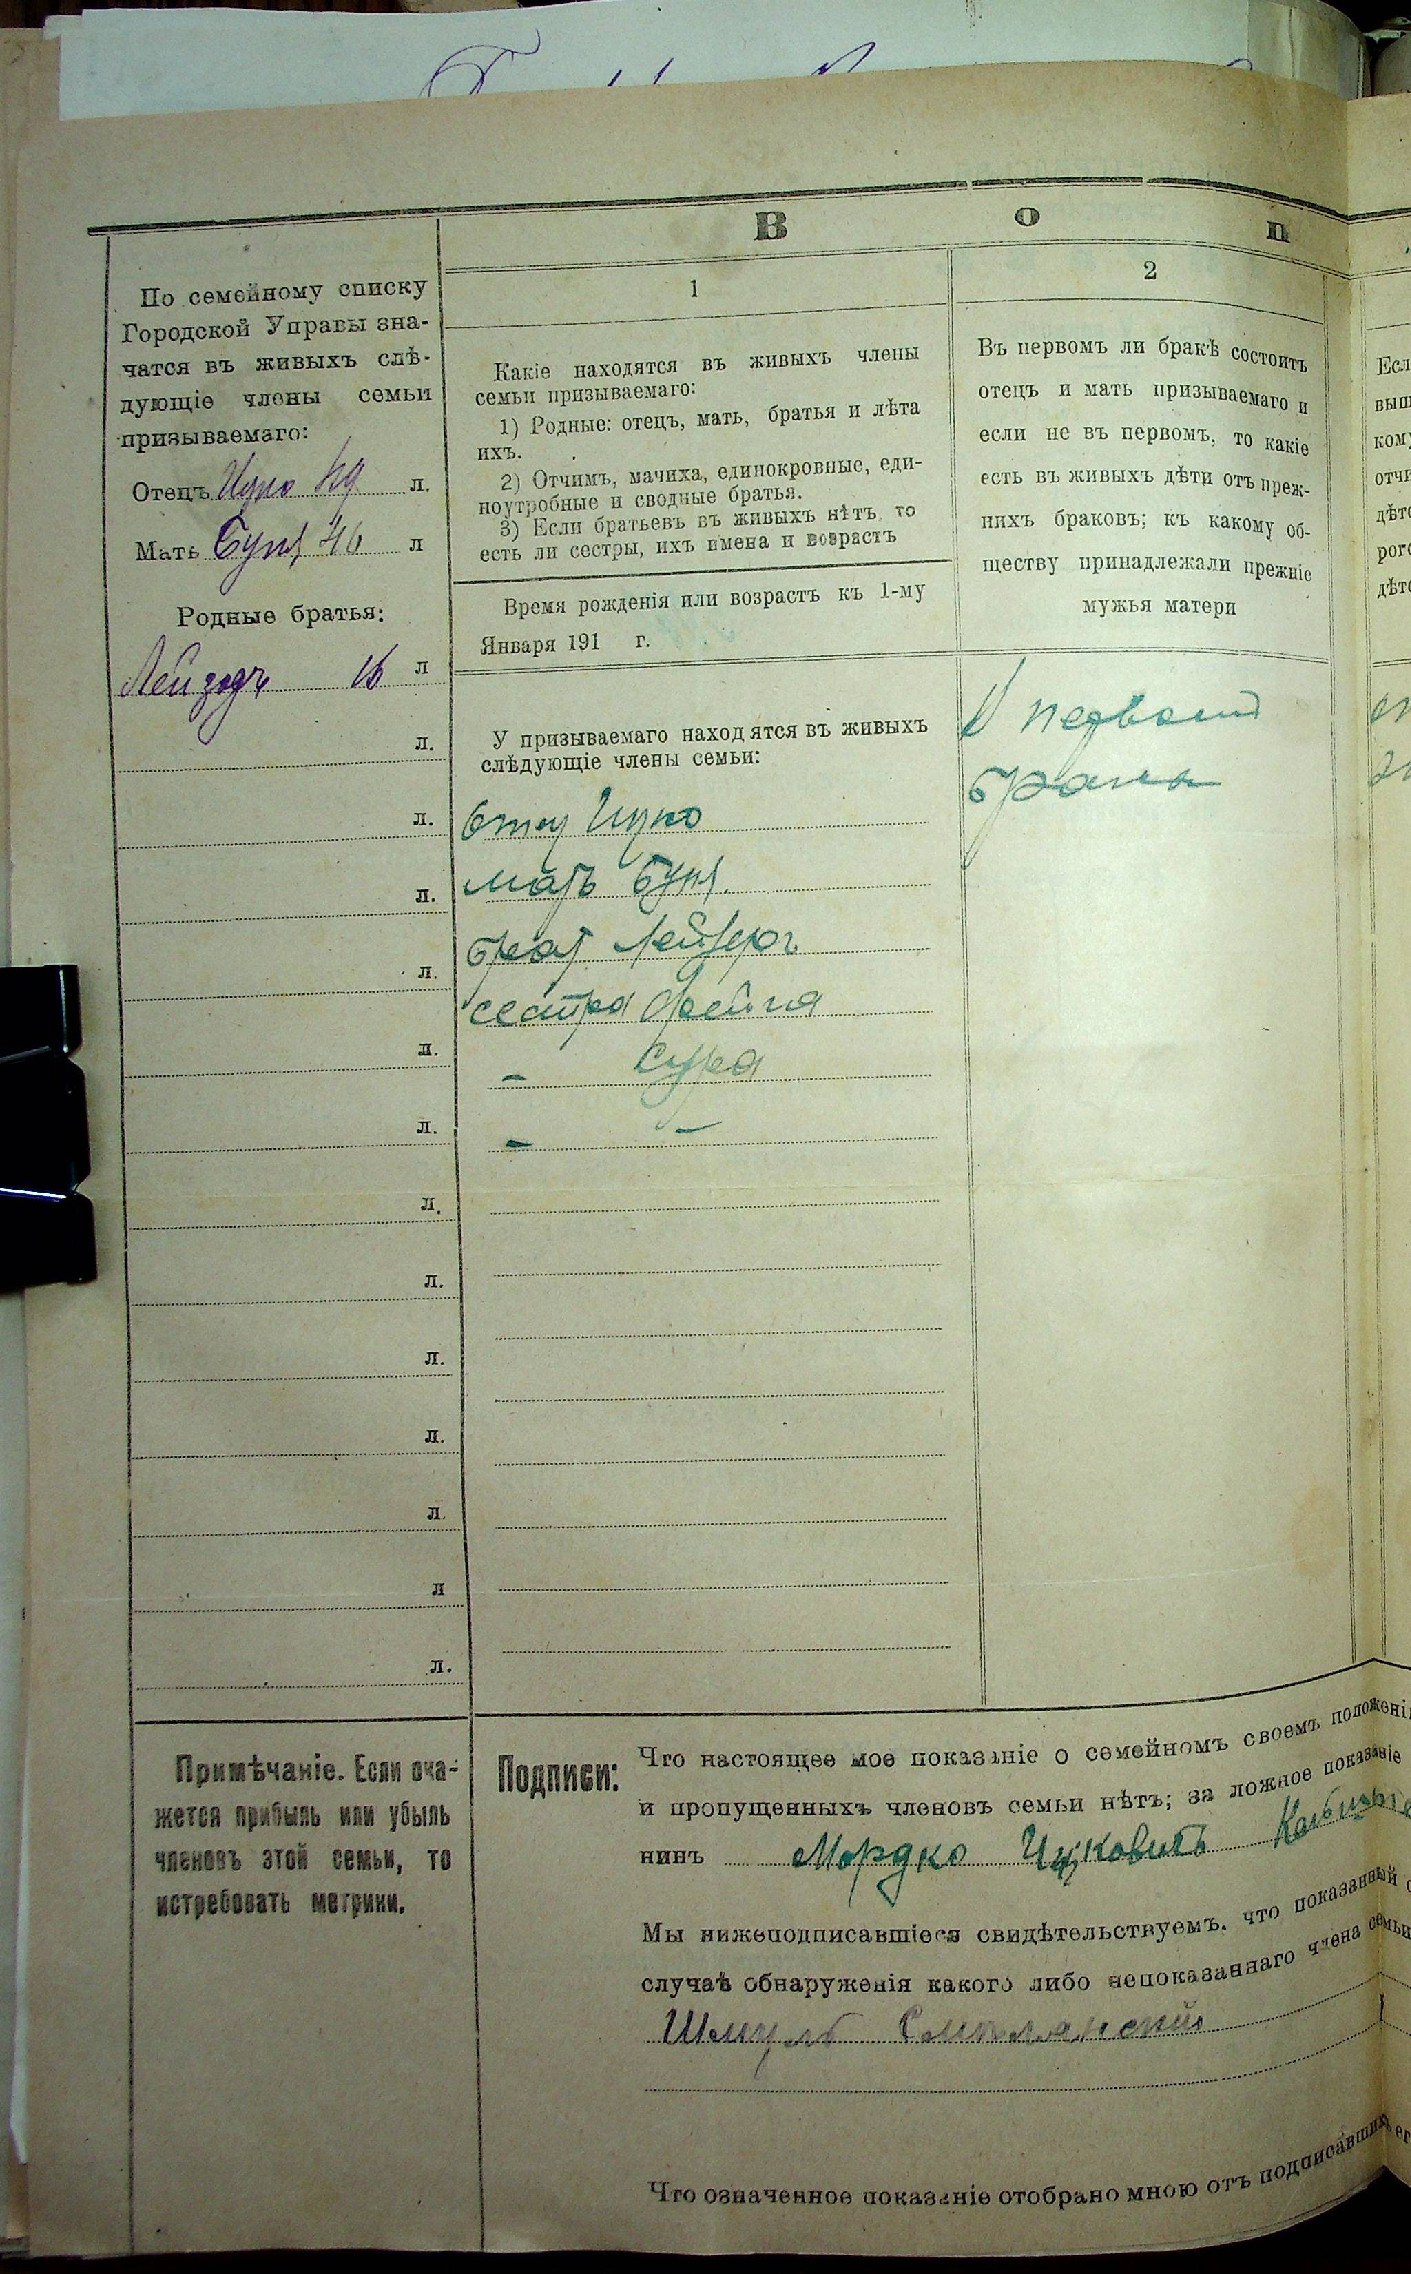 В о п
По семейному списку
Городской Управы зна-
чатся въ живыхъ слѣ-
дующіе члены семьи
призываемаго:
Отецъ Ицко л.
Мать Буня 46 л
Родные братья:
Лейзоръ 16 л
л.
л.
л.
л.
л.
л.
л.
л.
л.
л.
л.
л
л.
Примѣчаніе. Если ока-
жется прибыль или убыль
членовъ этой семьи, то
истребовать метрики.
1
Какіе находятся въ живыхъ члены
семьи призываемаго:
1) Родные: отецъ, мать, братья и лѣта
ихъ.
2) Отчимъ, мачиха, единокровные, еди-
ноутробные и сводные братья.
3) Если братьевъ въ живыхъ нѣтъ, то
есть ли сестры, ихъ имена и возрастъ
Время рожденія или возрастъ къ 1-му
Января 191 г.
У призываемаго находятся въ живыхъ
слѣдующіе члены семьи:
Отец Ицко
мать Буня
брат Лейзеръ
сестра Фейга
- Сура
- -
2
Въ первомъ ли бракѣ состоитъ
отецъ и мать призываемаго и
если не въ первомъ, то какіе
есть въ живыхъ дѣти отъ преж-
нихъ браковъ; къ какому об-
ществу принадлежали прежніе
мужья матери
В первом
браке
Есл
выш
кому
отчи
дѣте
рого
дѣте
Подписи:
Что настоящее мое показаніе о семейномъ своемъ положені
и пропущенныхъ членовъ семьи нѣтъ; за ложное показаніе
нинъ Мордко Ицковичъ
Мы нижеподписавшіеся свидѣтельствуемъ, что показанный с
случаѣ обнаруженія какого либо непоказаннаго члена семьи
Шмуль Смолянский
Что означенное показаніе отобрано мною отъ подписавшихъ ег